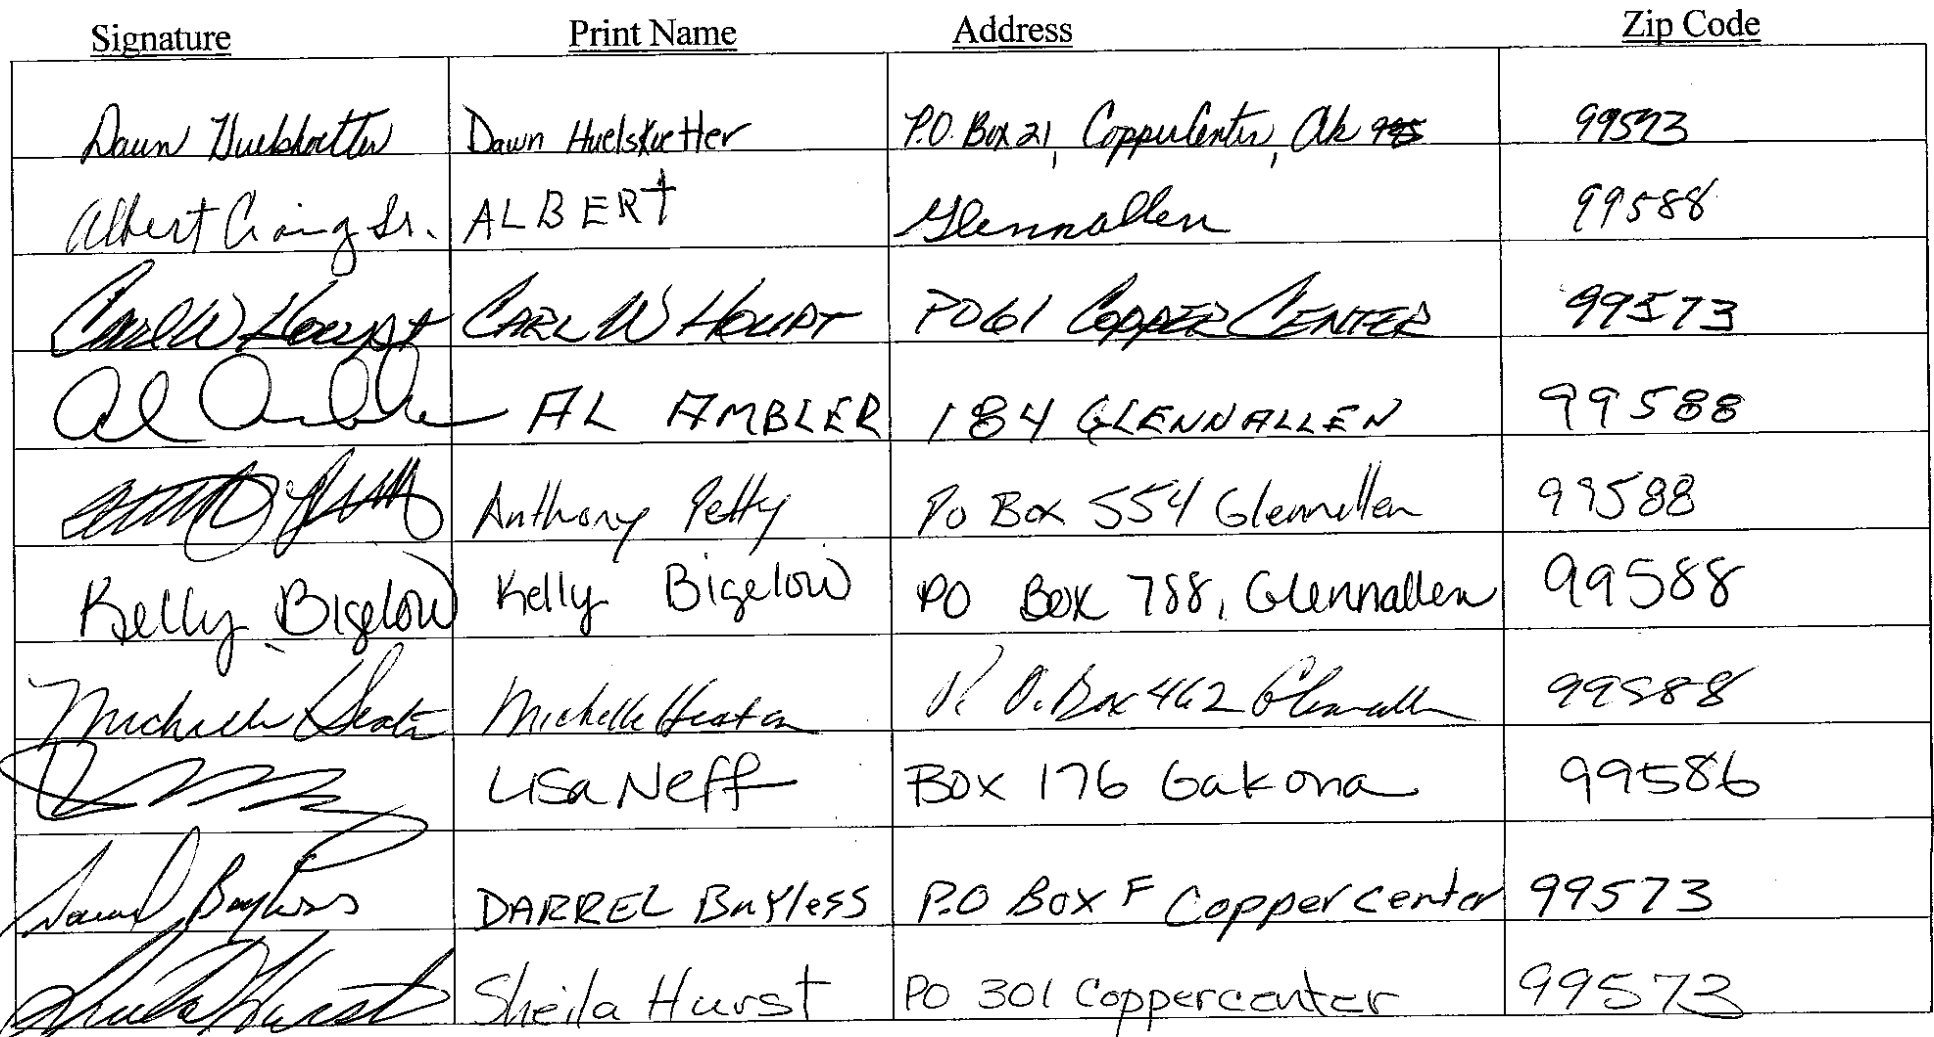 Signature Print Name Address Zip Code
Dawn Huelskoetter Dawn Huelskoetter P.O. Box 21, Copper Center, Ak 995 99573
Albert Craig Sr. ALBERT Glennallen 99588
Carl W Houpt CARL W HOUPT PO61 COPPER CENTER 99573
Al Ambler AL AMBLER 184 GLENNALLEN 99588
Anthony Petty Po Box 554 Glennallen 99588
Kelly Bigelow Kelly Bigelow PO Box 788, Glennallen 99588
Michelle Heaton Michelle Heaton P.O. Box 462 Glennallen 99588
Lisa Neff Box 176 Gakona 99586
Darrel Bayless DARREL Bayless P.O Box F Coppercenter 99573
Sheila Hurst Sheila Hurst PO 301 Coppercenter 99573